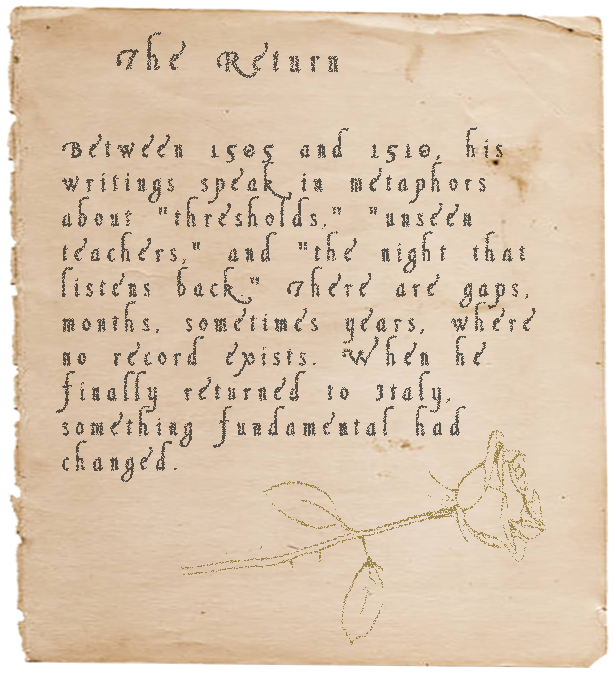 The Return
Between 1505 and 1510, his
writings speak in metaphors
about "thresholds," "unseen
teachers," and "the night that
listens back." There are gaps,
months, sometimes years, where
no record exists. When he
finally returned to Italy,
something fundamental had
changed.